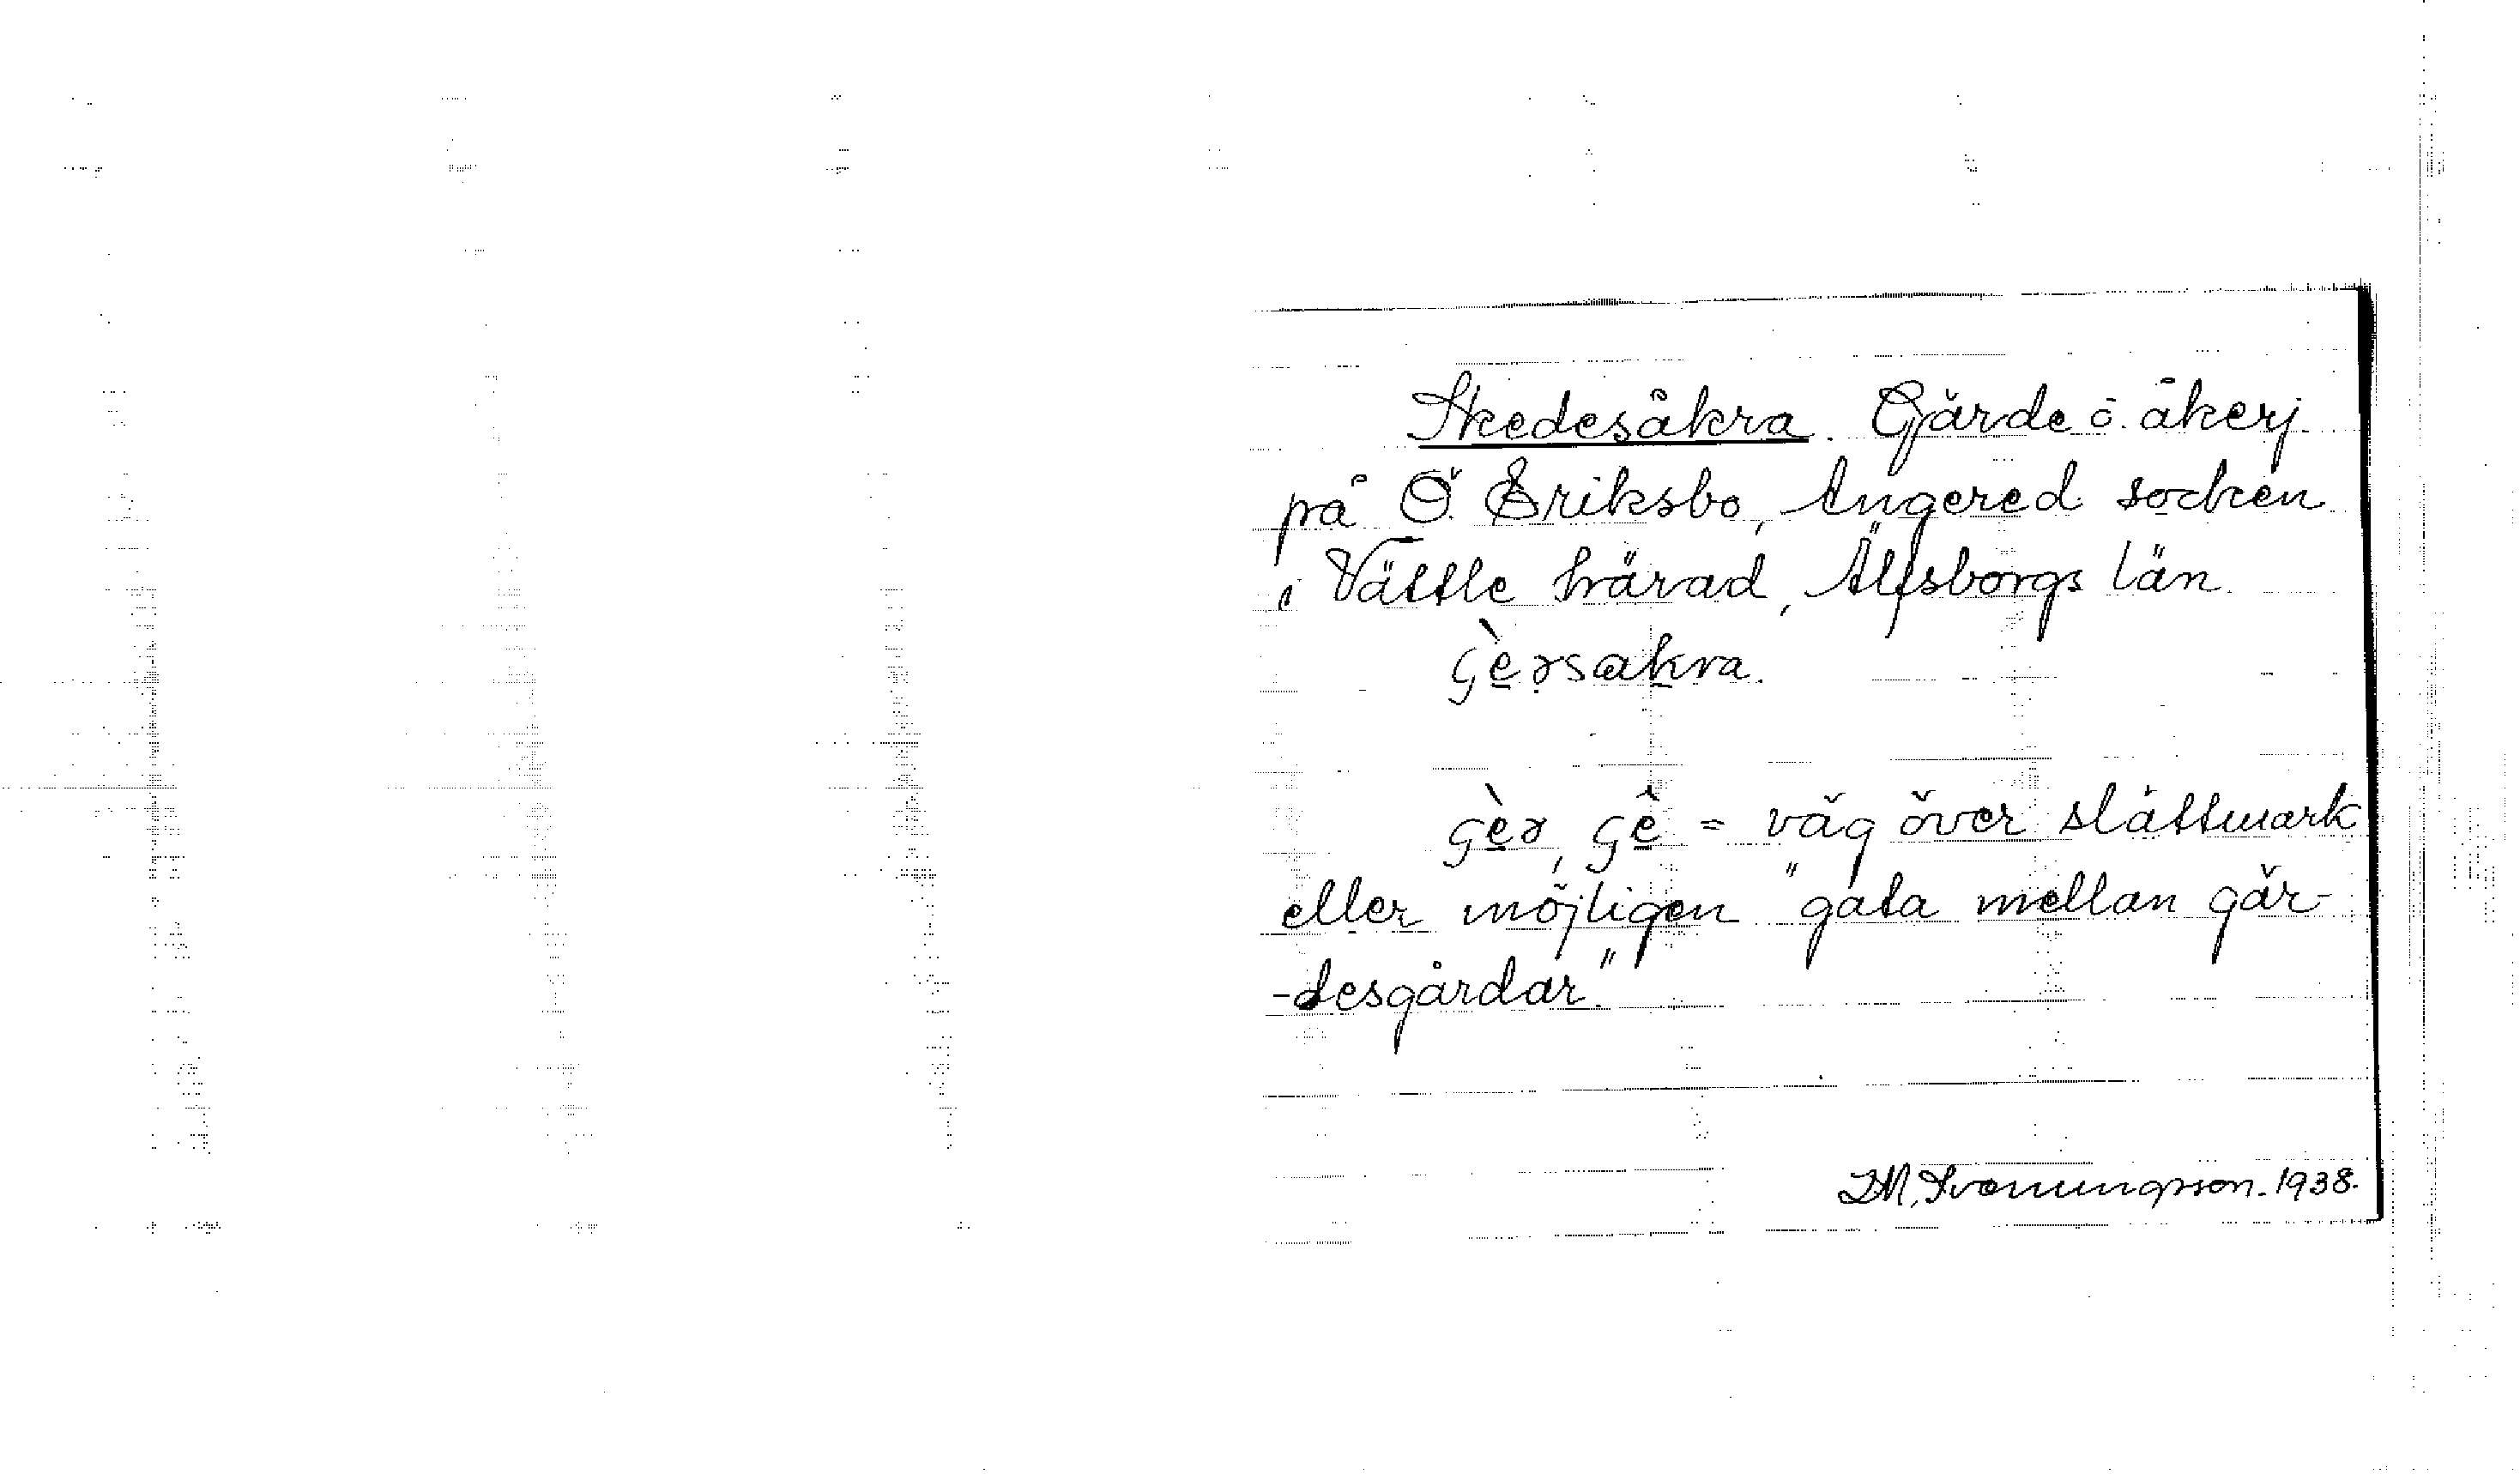 Skedesåkra. Gärde o. åkerj.
på Ö. Eriksbo, Angered socken
i Vättle härad, Älfsborgs län.
väg över slättmark
eller möjligen "gata mellan gär-
-desgårdar."
1938.